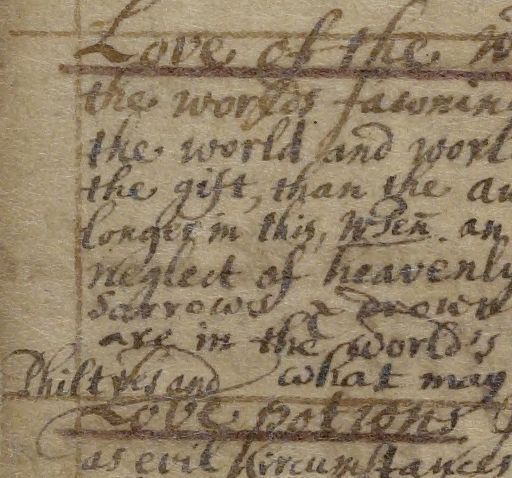 Love of the
the worlds fawnin
the world and worl
the gift, than the au
longer in this, an
neglect of heavenly
Sarrows & drown
are in the world's
Philtres and what may
Love potions
as evil Circumstances